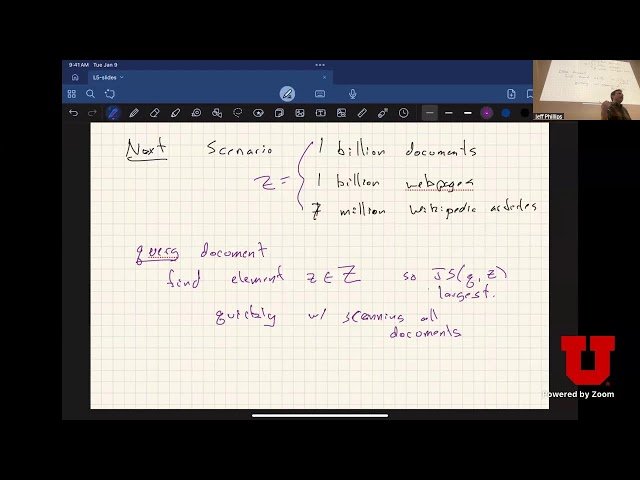 9:41 AM Tue Jan 9
L5-slides
Jeff Phillips
Next Scenario
Z =
1 billion documents
1 billion webpages
7 million Wikipedia articles
query document
find element z ∈ Z so JS(q, z) largest.
quickly w/ scanning all documents
U
Powered by Zoom